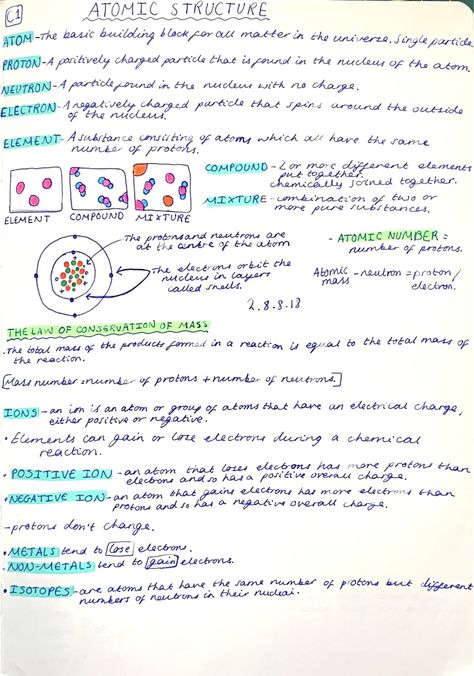 C1
ATOMIC STRUCTURE
ATOM - The basic building block for all matter in the universe. Single particle
PROTON - A positively charged particle that is found in the nucleus of the atom.
NEUTRON - A particle found in the nucleus with no charge.
ELECTRON - A negatively charged particle that spins around the outside
of the nucleus.
ELEMENT - A substance consisting of atoms which all have the same
number of protons.
COMPOUND - 2 or more different elements
put together.
chemically joined together.
MIXTURE - combination of two or
more pure substances.
ELEMENT COMPOUND MIXTURE
- The protons and neutrons are
at the centre of the atom
The electrons orbit the
nucleus in layers
called shells.
2.8.8.18
- ATOMIC NUMBER =
number of protons.
Atomic - neutron = proton /
mass electron.
THE LAW OF CONSERVATION OF MASS
· The total mass of the products formed in a reaction is equal to the total mass of
the reaction.
[Mass number = number of protons + number of neutrons.]
IONS - an ion is an atom or group of atoms that have an electrical charge,
either positive or negative.
· Elements can gain or lose electrons during a chemical
reaction.
· POSITIVE ION - an atom that loses electrons has more protons than
electrons and so has a positive overall charge.
· NEGATIVE ION - an atom that gains electrons has more electrons than
protons and so has a negative overall charge.
- protons don't change.
· METALS tend to lose electrons.
· NON-METALS tend to gain electrons.
· ISOTOPES - are atoms that have the same number of protons but different
numbers of neutrons in their nuclei.